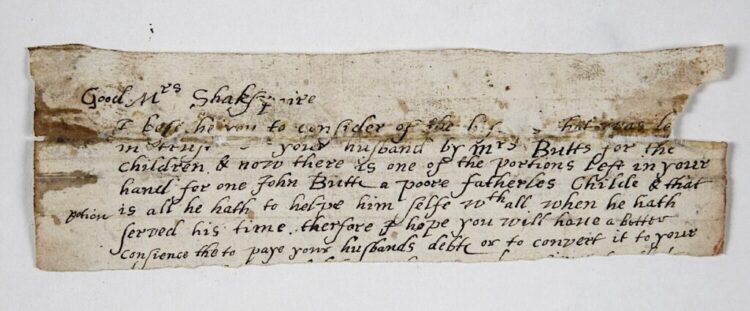 Good Mrs Shakspaire
I bese he you to consider of the hat was
in trust your husband by mrs Butts for the
Children & now there is one of the portions left in your
hand for one John Butte a poore fatherles Childe & that
potion is all he hath to helpe him selfe wth all when he hath
served his time therfore I hope you will have a better
consience the to paye your husbands debte or to convert it to your